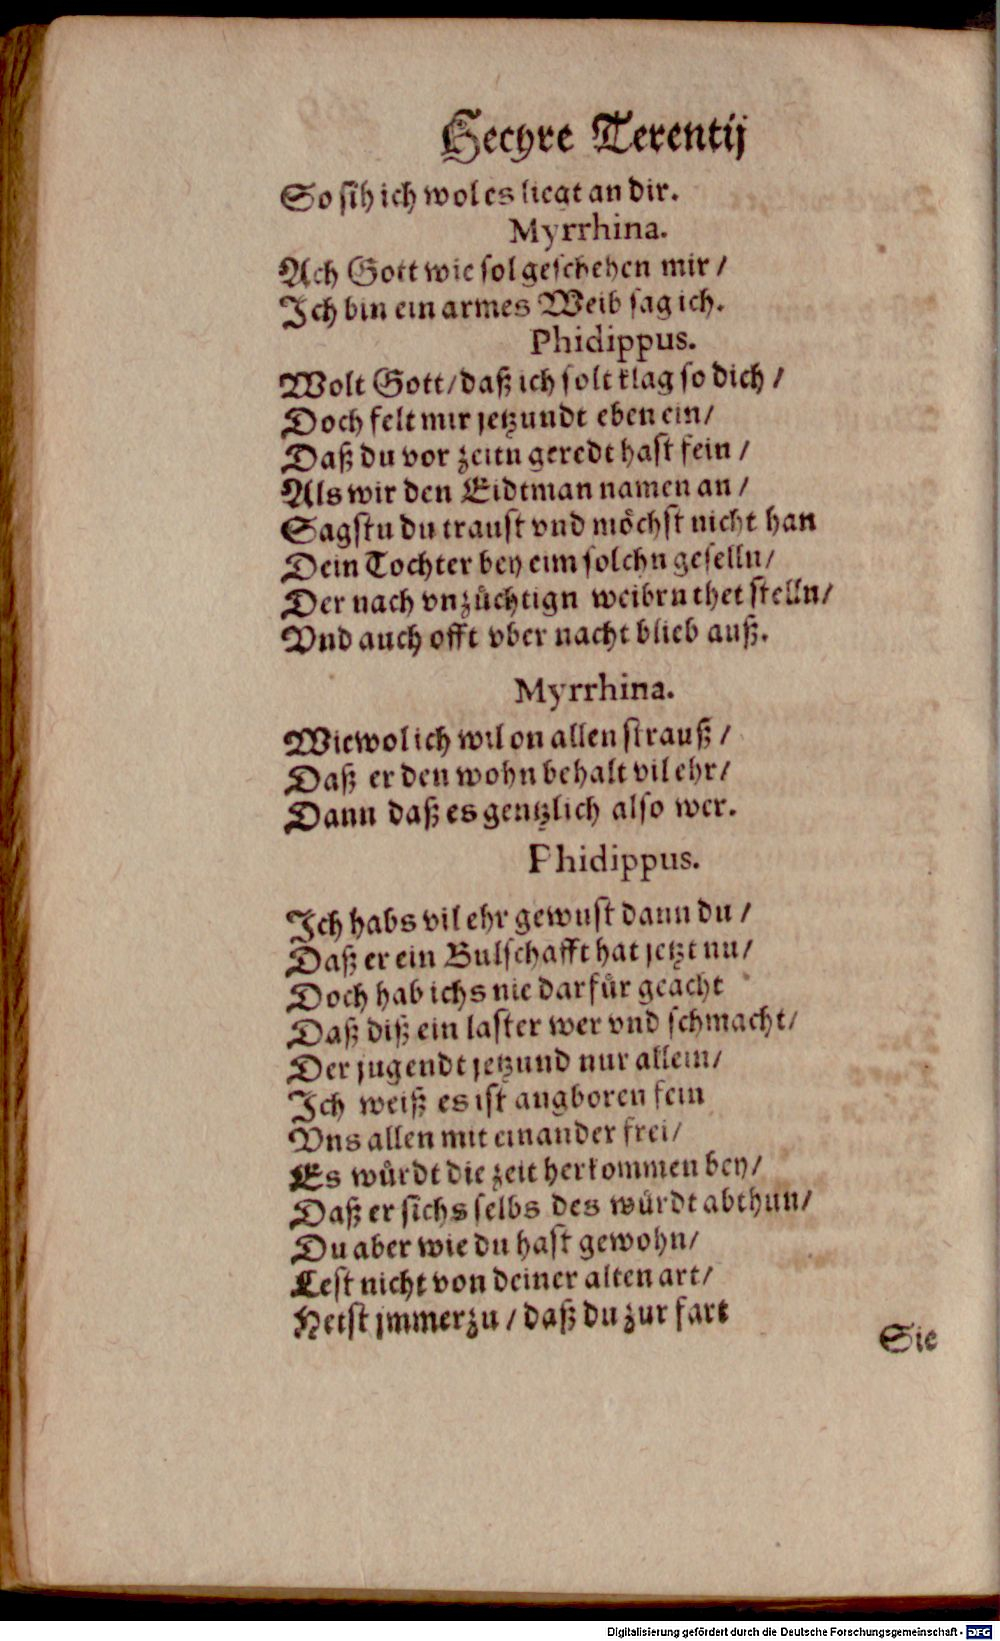 Hecyre Terentij
So sih ich wol es liegt an dir.
Myrrhina.
Ach Gott wie sol geschehen mir /
Ich bin ein armes Weib sag ich.
Phidippus.
Wolt Gott / daß ich solt klag so dich /
Doch felt mir jetzundt eben ein /
Daß du vor zeitn geredt hast fein /
Als wir den Eidtman namen an /
Sagstu du traust vnd möchst nicht han
Dein Tochter bey eim solchn geselln /
Der nach vnzüchtign weibrn thet stelln /
Vnd auch offt vber nacht blieb auß.
Myrrhina.
Wiewol ich wil on allen strauß /
Daß er den wohn behalt vil ehr /
Dann daß es gentzlich also wer.
Phidippus.
Ich habs vil ehr gewust dann du /
Daß er ein Bulschafft hat jetzt nu /
Doch hab ichs nie darfür geacht
Daß diß ein laster wer vnd schmacht /
Der jugendt jetzund nur allein /
Ich weiß es ist angboren fein
Vns allen mit einander frei /
Es würdt die zeit herkommen bey /
Daß er sichs selbs des würdt abthun /
Du aber wie du hast gewohn /
Lest nicht von deiner alten art /
Hetst jmmerzu / daß du zur fart
Sie
Digitalisierung gefördert durch die Deutsche Forschungsgemeinschaft - DFG